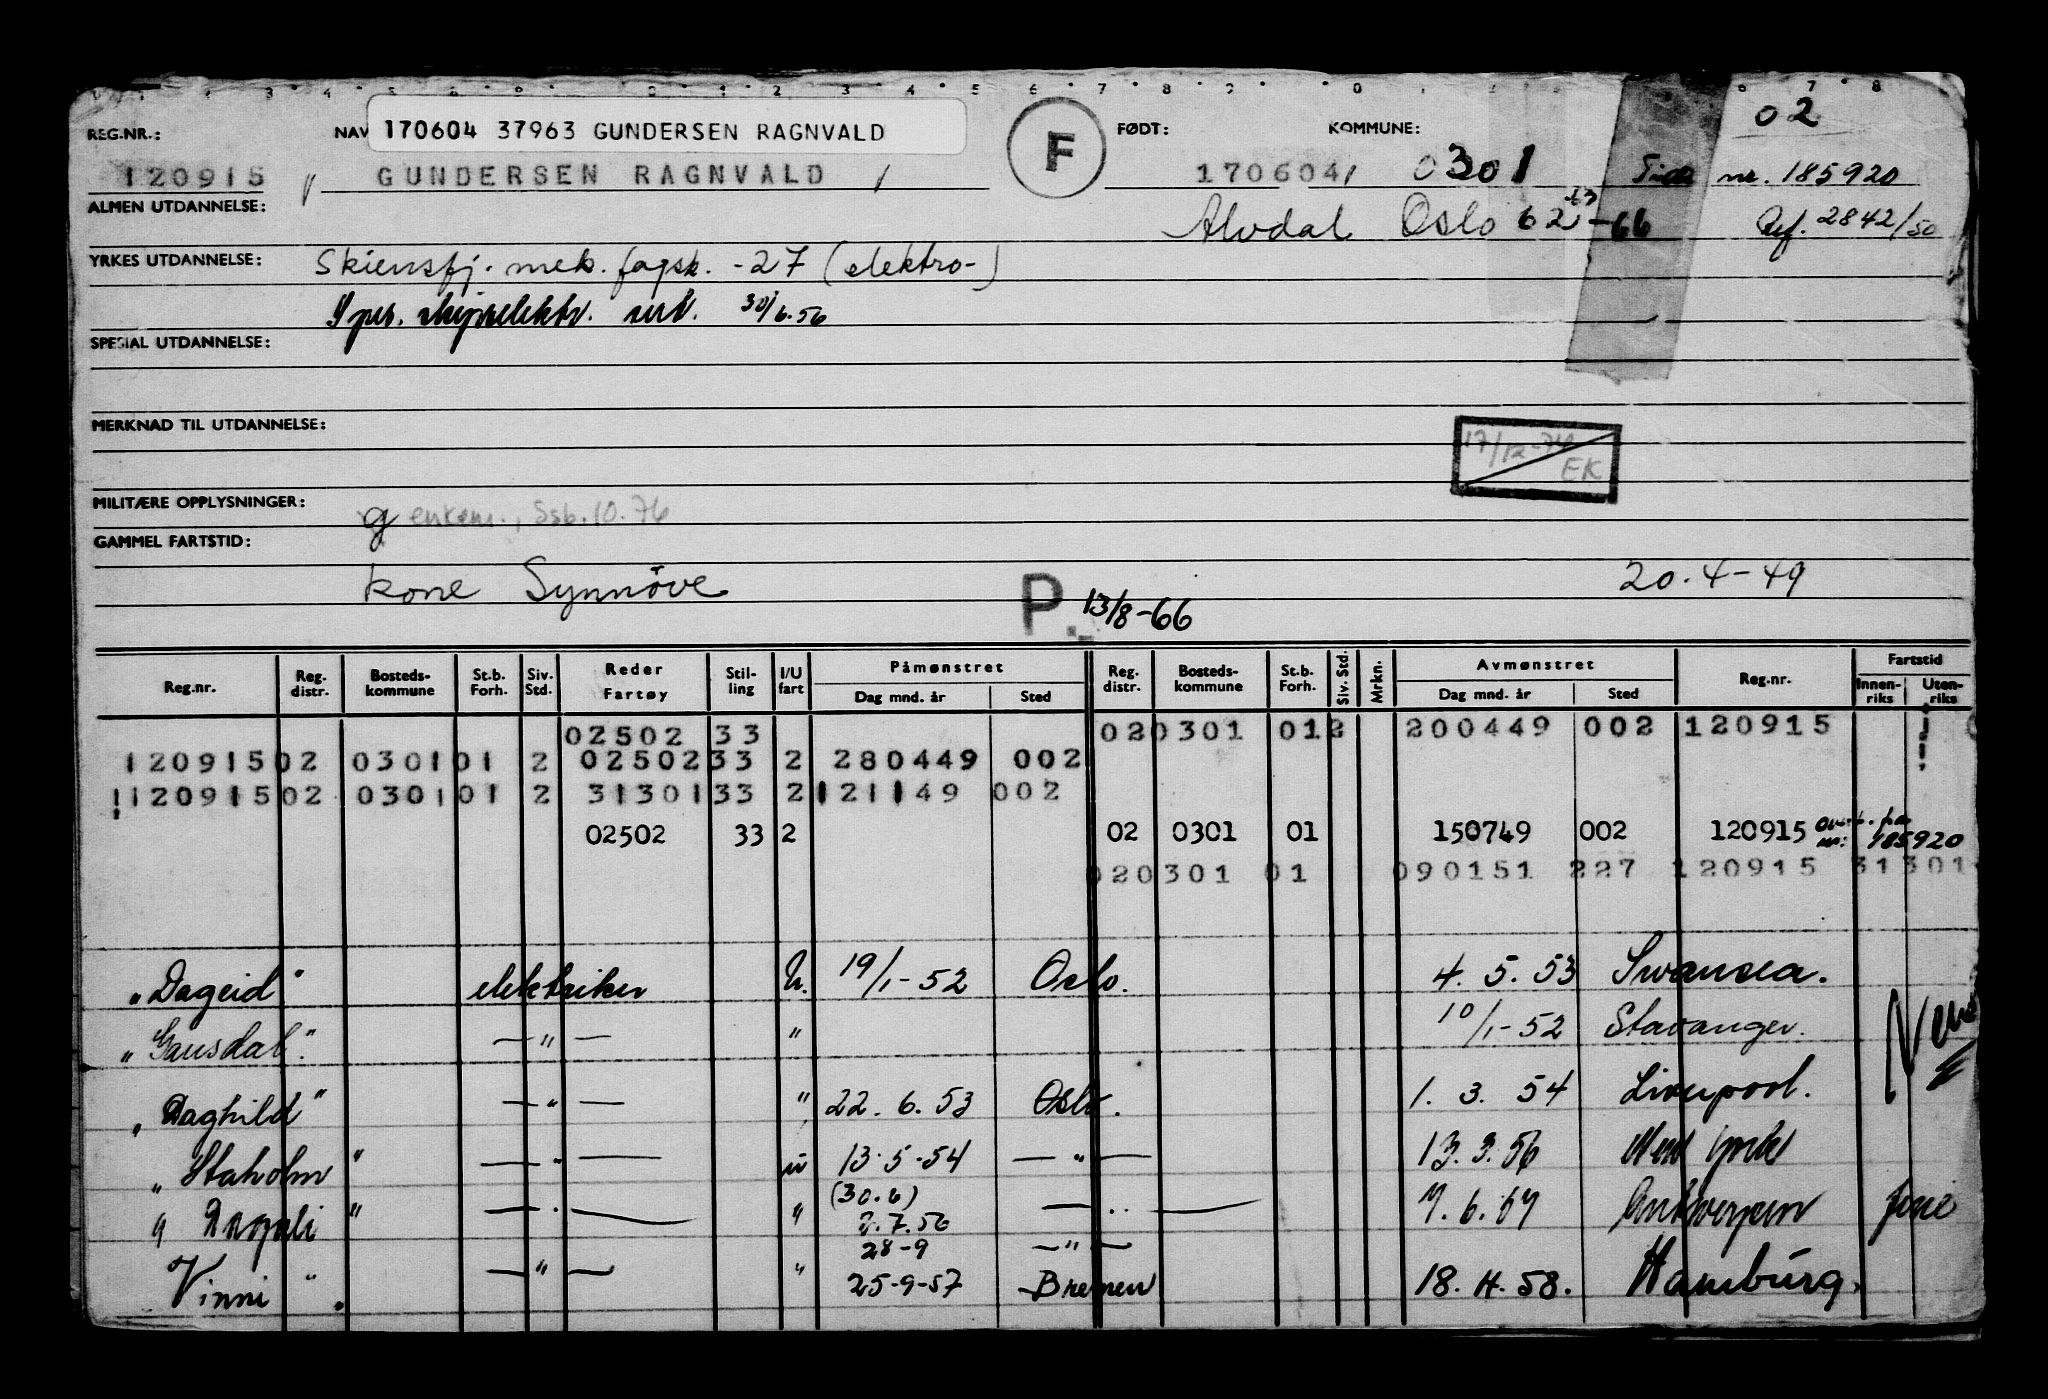 02
REG.NR.: NAV 170604 37963 GUNDERSEN RAGNVALD F FØDT: KOMMUNE:
120915 GUNDERSEN RAGNVALD 170604 0301 nr. 185920
ALMEN UTDANNELSE: Alvdal Oslo 62 -66 Ref. 2842/50
YRKES UTDANNELSE: Skiensfj. mek. fagsk. -27 (elektro-)
skipselektr. sert. 30/6.56
SPESIAL UTDANNELSE:
MERKNAD TIL UTDANNELSE:
17/12-74 EK
MILITÆRE OPPLYSNINGER: g enkem., Ssb.10.76
GAMMEL FARTSTID:
kone Synnöve P. 13/8-66 20.4-49
Reg.nr. Reg. distr. Bosteds- kommune St.b. Forh. Siv. Std. Reder Fartøy Stil- ling I/U fart Påmønstret Dag mnd. år Sted Reg. distr. Bosteds- kommune St.b. Forh. Siv. Std. Mrkn. Avmønstret Dag mnd. år Sted Reg.nr. Fartstid Innen- riks Uten- riks
02502 33 02 0301 01 2 200449 002 120915
120915 02 0301 01 2 02502 33 2 280449 002
120915 02 0301 01 2 31301 33 2 121149 002
02502 33 2 02 0301 01 150749 002 120915 185920
02 0301 01 090151 227 120915 31301
"Dageid" elektriker U. 19/1-52 Oslo. 4.5.53 Swansea.
"Gausdal" —"— " 10/1-52 Stavanger.
"Daghild" —"— " 22.6.53 Oslo. 1.3.54 Liverpool.
"Staholm" —"— u 13.5.54 —"— 13.3.56 New York
" Dagali " —"— " (30.6) 2.7.56 —"— 7.6.57 Antwerpen
28-9 —"—
Vinni " —"— " 25-9-57 Bremen 18.4.58. Hamburg.